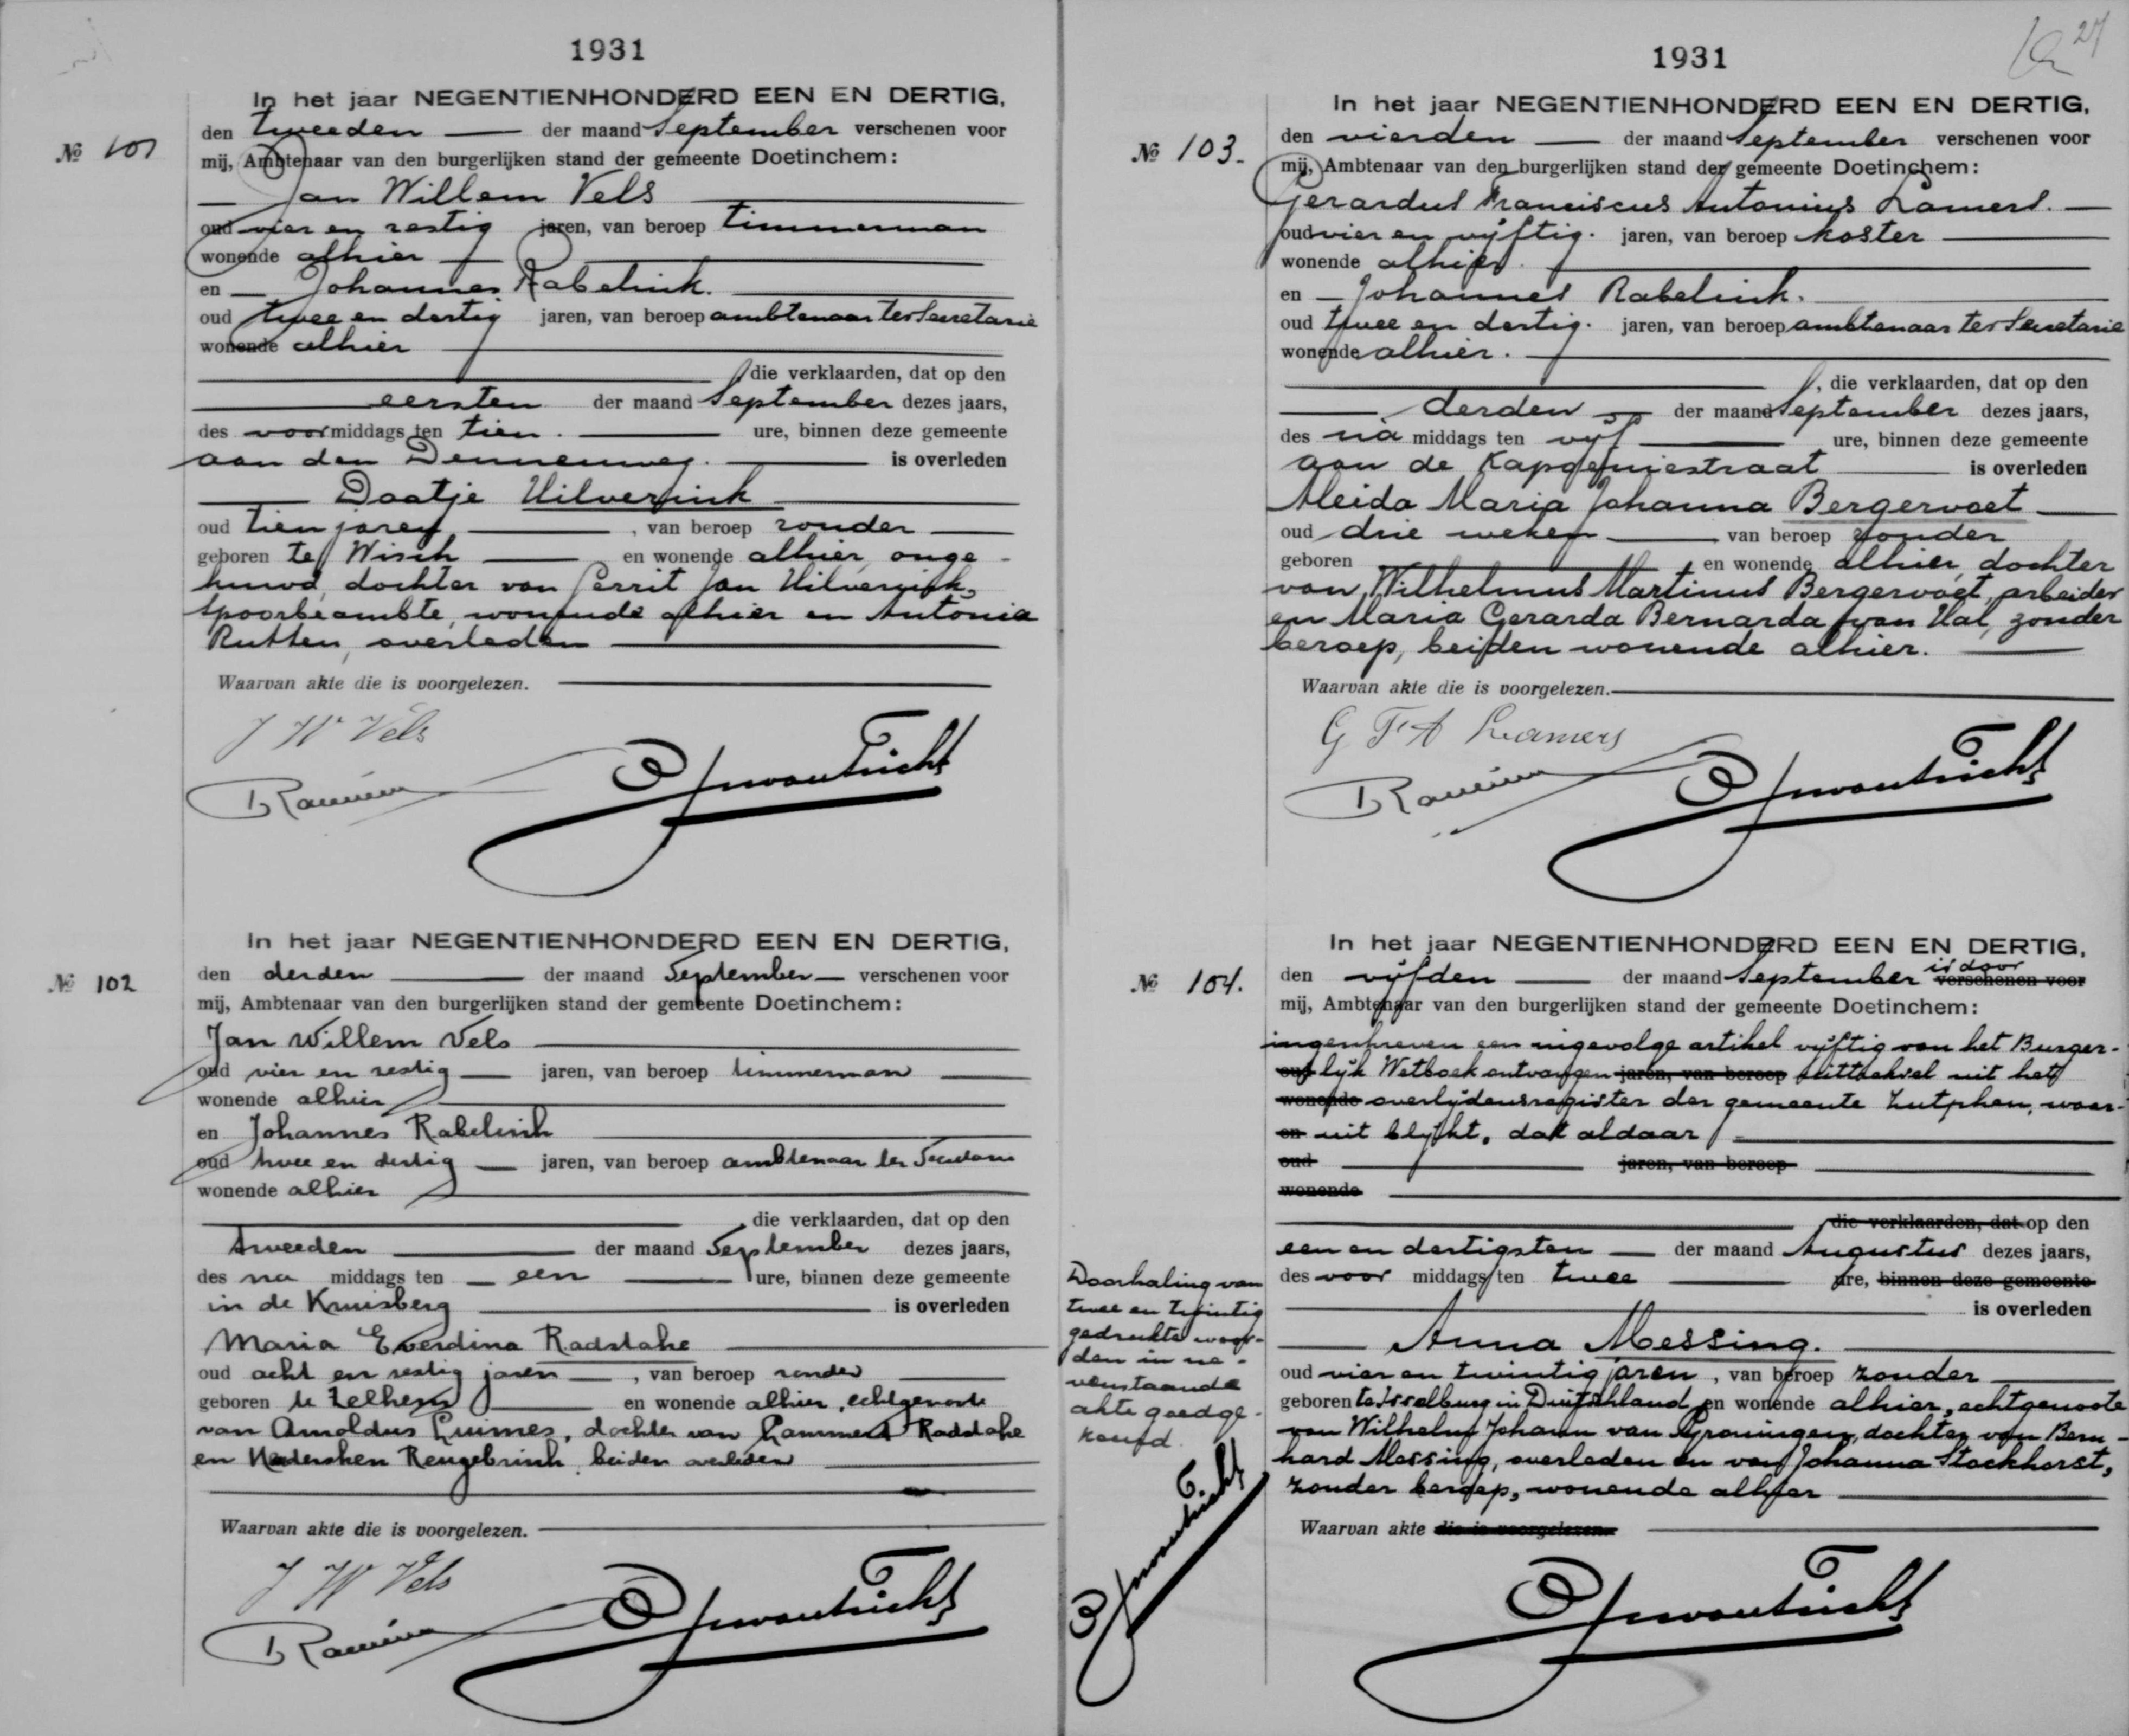 1931
In het jaar NEGENTIENHONDERD EEN EN DERTIG,
№ 101
den tweeden der maand September verschenen voor
mij, Ambtenaar van den burgerlijken stand der gemeente Doetinchem:
Jan Willem Vels
oud vier en zestig jaren, van beroep timmerman
wonende alhier
en Johannes Rabelink.
oud twee en dertig jaren, van beroep ambtenaar ter Secretarie
wonende alhier
die verklaarden, dat op den
eersten der maand September dezes jaars,
des voormiddags ten tien. ure, binnen deze gemeente
aan den Dennenweg. is overleden
Daatje Uilverink
oud tien jaren, van beroep zonder
geboren te Wisch en wonende alhier, onge-
huwd, dochter van Gerrit Jan Uilverink,
spoorbeambte, wonende alhier en Antonia
Rutten, overleden
Waarvan akte die is voorgelezen.
J W Vels
In het jaar NEGENTIENHONDERD EEN EN DERTIG,
№ 102
den derden der maand September verschenen voor
mij, Ambtenaar van den burgerlijken stand der gemeente Doetinchem:
Jan Willem Vels
oud vier en zestig jaren, van beroep timmerman
wonende alhier
en Johannes Rabelink
oud twee en dertig jaren, van beroep ambtenaar ter Secretarie
wonende alhier
die verklaarden, dat op den
tweeden der maand September dezes jaars,
des na middags ten een ure, binnen deze gemeente
in de Kruisberg is overleden
Maria Everdina Radstake
oud acht en zestig jaren, van beroep zonder
geboren te Zelhem en wonende alhier, echtgenoote
van Arnoldus Luimes, dochter van Lammert Radstake
en Hendersken Rengebrink, beiden overleden
Waarvan akte die is voorgelezen.
J W Vels
1931
27
In het jaar NEGENTIENHONDERD EEN EN DERTIG,
№ 103.
den vierden der maand September verschenen voor
mij, Ambtenaar van den burgerlijken stand der gemeente Doetinchem:
Gerardus Franciscus Antonius Lamers.
oud vier en vijftig. jaren, van beroep koster
wonende alhier.
en Johannes Rabelink.
oud twee en dertig. jaren, van beroep ambtenaar ter Secretarie
wonende alhier.
, die verklaarden, dat op den
derden der maand September dezes jaars,
des na middags ten vijf ure, binnen deze gemeente
aan de Kapoeniestraat is overleden
Aleida Maria Johanna Bergervoet
oud drie weken van beroep zonder
geboren en wonende alhier, dochter
van Wilhelmus Martinus Bergervoet, arbeider
en Maria Gerarda Bernarda van Hal, zonder
beroep, beiden wonende alhier.
Waarvan akte die is voorgelezen.
G F A Lamers
In het jaar NEGENTIENHONDERD EEN EN DERTIG,
№ 104.
den vijfden der maand September is door verschenen voor
mij, Ambtenaar van den burgerlijken stand der gemeente Doetinchem:
ingeschreven een ingevolge artikel vijftig van het Burger-
oud lijk Wetboek ontvangen jaren, van beroep uittreksel uit het
wonende overlijdensregister der gemeente Zutphen, waar-
en uit blijkt, dat aldaar
oud jaren, van beroep
wonende
die verklaarden, dat op den
een en dertigsten der maand Augustus dezes jaars,
des voor middags ten twee ure, binnen deze gemeente
is overleden
Anna Messing.
oud vier en twintig jaren, van beroep zonder
geboren te Isselburg in Duitschland en wonende alhier, echtgenoote
van Wilhelm Johann van Groningen, dochter van Bern-
hard Messing, overleden en van Johanna Stockhorst,
zonder beroep, wonende alhier
Waarvan akte die is voorgelezen.
Doorhaling van
twee en twintig
gedrukte woor-
den in ne-
venstaande
akte goedge-
keurd.